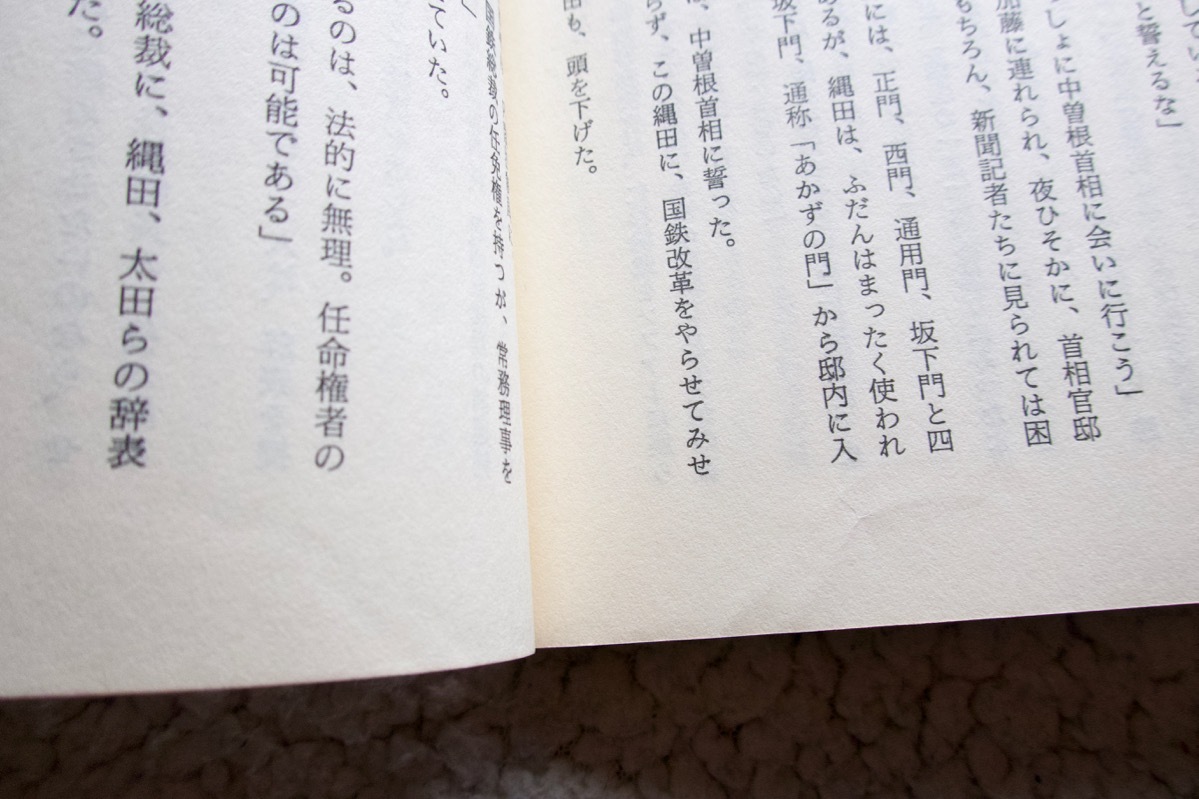 してい
と誓えるな」
しょに中曽根首相に会いに行こう」
加藤に連れられ、夜ひそかに、首相官邸
もちろん、新聞記者たちに見られては困
には、正門、西門、通用門、坂下門と四
あるが、縄田は、ふだんはまったく使われ
坂下門、通称「あかずの門」から邸内に入
は、中曽根首相に誓った。
らず、この縄田に、国鉄改革をやらせてみせ
田も、頭を下げた。
国鉄総裁の任免権を持つが、常務理事を
ていた。
るのは、法的に無理。任命権者の
のは可能である」
総裁に、縄田、太田らの辞表
た。